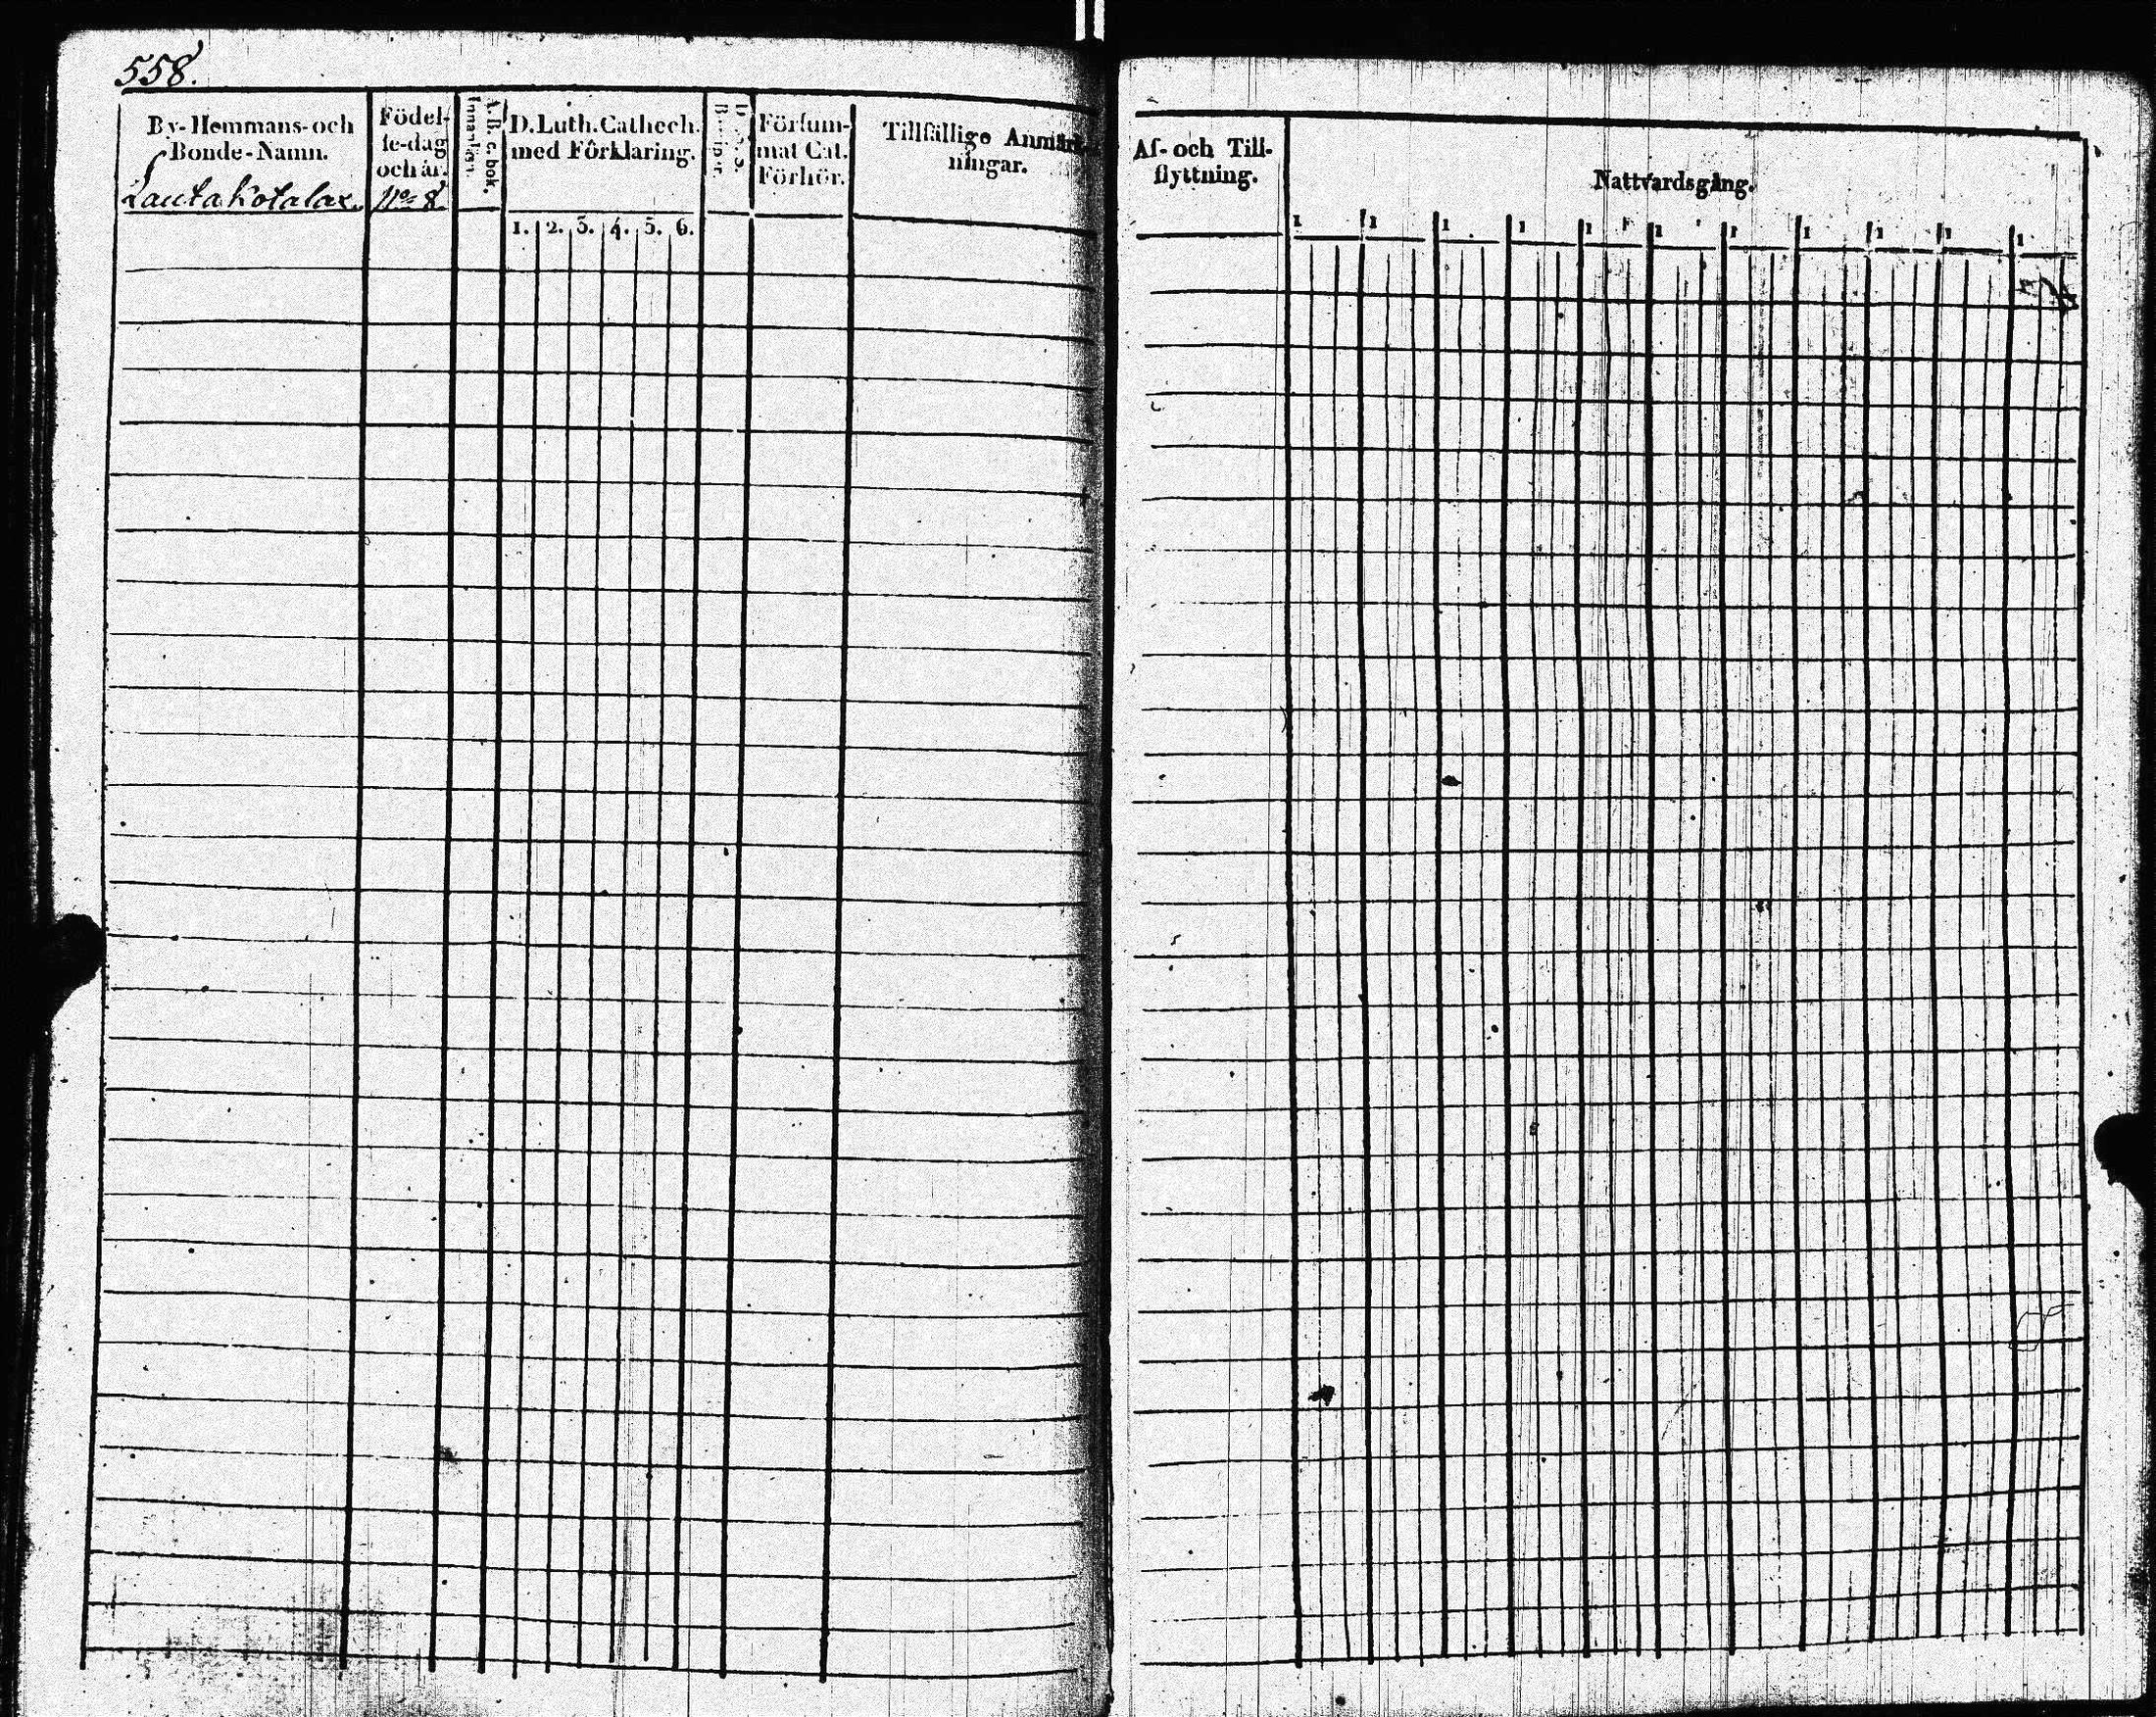 558.
By- Hemmans- och
Bonde-Namn.
Lautakotalax.
Födel-
se-dag
och år.
No 8
A. B. c. bok.
Innanläsn.
D. Luth. Cathech.
med Förklaring.
1. 2. 3. 4. 5. 6.
Försum-
mat Cat.
Förhör.
Tillfällige Anmärk-
ningar.
Af- och Till-
flyttning.
Nattvardsgång.
1 1 1 1 1 1 1 1 1 1 1